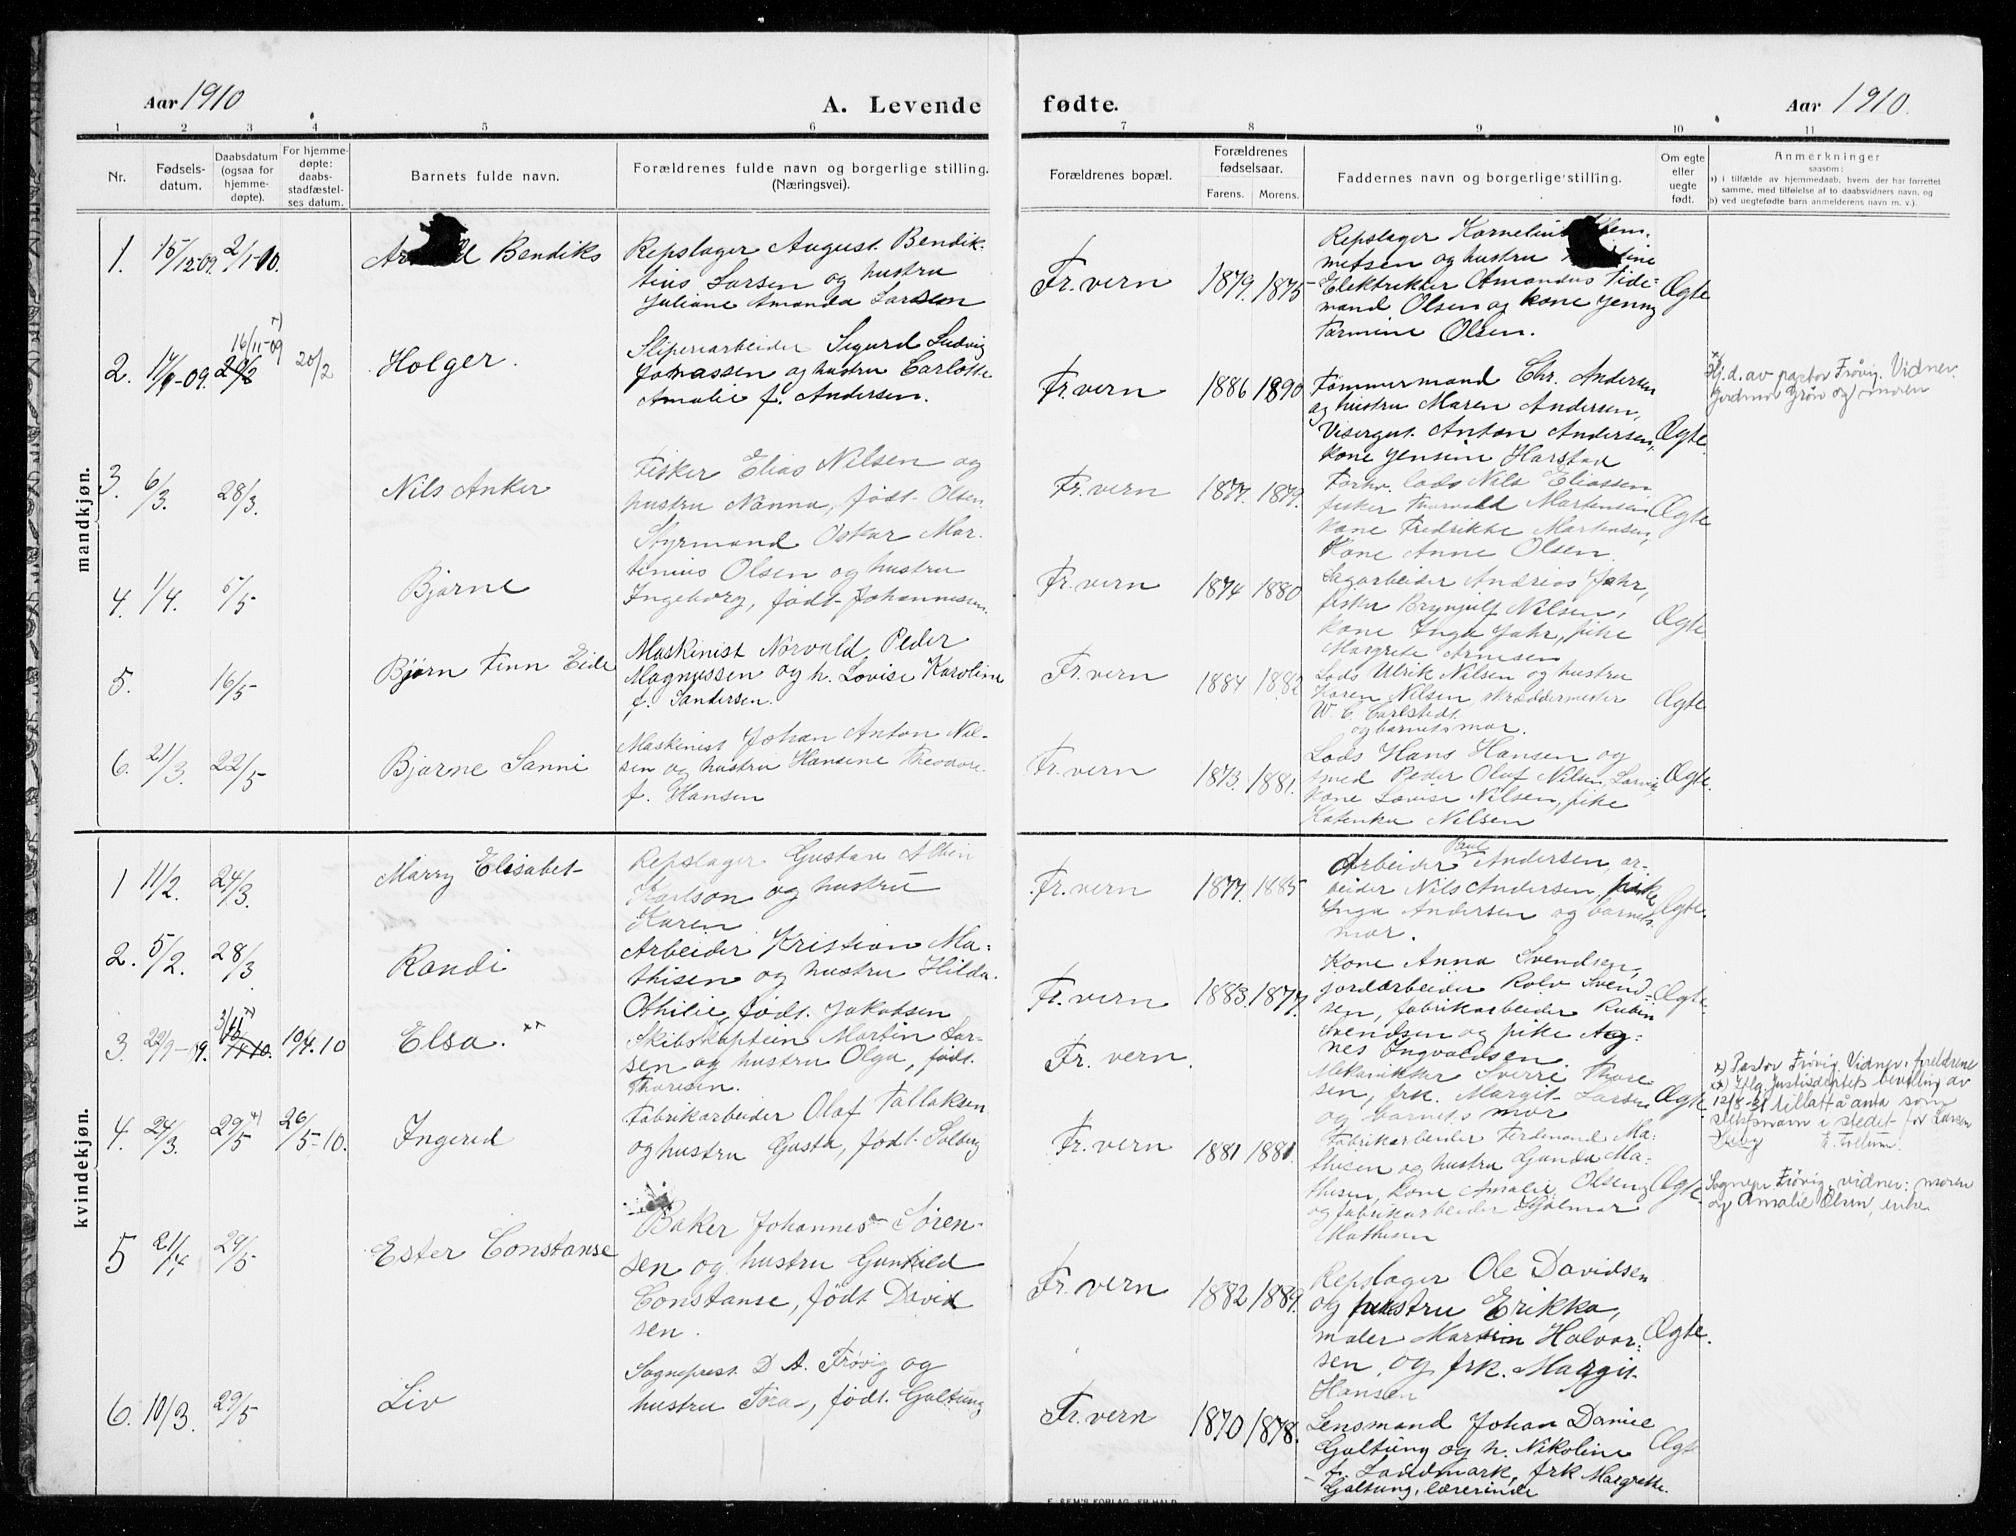 Aar 1910
A. Levende
fødte.
Aar 1910.
1 2 3 4 5 6 7 8 9 10 11
Nr.
Fødsels-
datum.
Daabsdatum
(ogsaa for
hjemme-
døpte).
For hjemme-
døpte:
daabs-
stadfæstel-
ses datum.
Barnets fulde navn.
Forældrenes fulde navn og borgerlige stilling.
(Næringsvei).
Forældrenes bopæl.
Forældrenes
fødselsaar.
Farens. Morens.
Faddernes navn og borgerlige stilling.
Om egte
eller
uegte
født.
Anmerkninger
saasom:
a) i tilfælde av hjemmedaab, hvem der har forrettet
samme, med tilføielse af to daabsvidners navn, og
b) ved uegtefødte barn anmelderens navn m. v.).
mandkjøn.
1. 15/12-09. 2/1-10.
Bendiks
Repslager August Bendik-
tius Larsen og hustru
Juliane Amanda Larsen
Fr.vern 1879. 1875
Repslager Kornelius Klem-
metsen og hustru
Elektriker Amandus Tide-
mand Olsen og kone Jenny
Tarmine Olsen.
Ægte
2. 17/9-09. 16/11-09 x) 20/2 20/2
Holger.
Sliperiarbeider Sigurd Ludvig
Jonassen og hustru Carlotte
Amalie f. Andersen.
Fr.vern 1886 1890
Tømmermand Chr. Andersen
og hustru Maren Andersen,
Visergut Anton Andersen,
kone Jensine Harstad
Ægte.
x) Hj.d. av pastor Frøvig. Vidner:
Jordmor Grøn og moren
3. 6/3. 28/3.
Nils Anker
Fisker Elias Nilsen og
hustru Nanna, født Olsen.
Fr.vern 1877. 1879.
Forhv. lods Nils Eliassen
fisker Thorvald Martensen
kone Fredrikke Martensen,
Kone Anne Olsen.
Ægte.
4. 1/4. 5/5
Bjarne
Styrmand Oskar Mar-
tinius Olsen og hustru
Ingeborg, født Johannesen.
Fr.vern 1874 1880
Sagarbeider Andreas Jahr,
fisker Brynjulf Nilsen,
kone Inga Jahr, pike
Margrete Arnesen
Ægte.
5. 16/5
Bjørn Finn Eide
Maskinist Norvald Peder
Magnussen og h. Lovise Karoline
f. Sandersen.
Fr.vern 1884 1882
Lods Ulrik Nilsen og hustru
Karen Nilsen, skræddermester
W. C. Carlstedt
og barnets mor.
Ægte
6. 21/3. 22/5
Bjarne Sanni
Maskinist Johan Anton Nil-
sen og hustru Hansine Theodore
f. Hansen
Fr.vern 1873. 1881.
Lods Hans Hansen og
smed Peder Oluf Nilsen, Larvik,
kone Lovise Nilsen, pike
Katinka Nilsen
Ægte.
kvindekjøn.
1 11/2. 24/3.
Marry Elisabet
Repslager Gustav Albin
Karlson og hustru
Karen
Fr.vern 1877. 1885
Arbeider Paul Andersen, ar-
beider Nils Andersen, pike
Inga Andersen og barnets
mor.
Ægte.
2. 5/2. 28/3
Randi
Arbeider Kristian Ma-
thisen og hustru Hilda
Othilie, født Jakobsen
Fr.vern 1883. 1877.
Kone Anna Svendsen,
jordarbeider Rolv Svend-
sen, fabrikarbeider Rubin
Svendsen og pike Ag-
nes Ingvaldsen
Ægte.
3. 22/9-09. 10/4.10
Elsa. xx
Skibskaptein Martin Lar-
sen og hustru Olga, født
Thoresen.
Fr. vern.
Mekaniker Sverre Thore
sen, frk. Margit Larsen
og barnets mor
Ægte.
x) Pastor Frøvig. Vidner: forældrene
xx) Iflg. Justisdeptets bevilling av
12/8-21 tillatt å anta som
slektsnavn i stedet for Larsen
E. Tollum.
4. 24/3. 29/5 x) 26/5-10.
Ingerid
Fabrikarbeider Olaf Tallaksen
og hustru Gusta, født Solberg
Fr.vern 1881 1881.
Fabrikarbeider Ferdinand Ma-
thisen og hustru Gunda Ma-
thisen, kone Amalie Olsen,
og fabrikarbeider Hjalmar
Mathisen
Ægte.
Sognepr Frøvig, vidner: moren
og Amalie Olsen, enke.
5 21/4 29/5
Ester Constanse
Baker Johannes Søren-
sen og hustru Gunhild
Constanse, født David
sen.
Fr.vern 1882 1889.
Repslager Ole Davidsen
og hustru Erikka,
maler Martin Halvor-
sen, og frk. Margit
Hansen
Ægte.
6. 10/3. 29/5
Liv
Sogneprest D A. Frøvig og
hustru Tora, født Galtung
Fr.vern 1870 1878.
Lensmand Johan Daniel
Galtung og h. Nikoline
f. Landmark, frk Margrethe
Galtung, lærerinde
Ægt